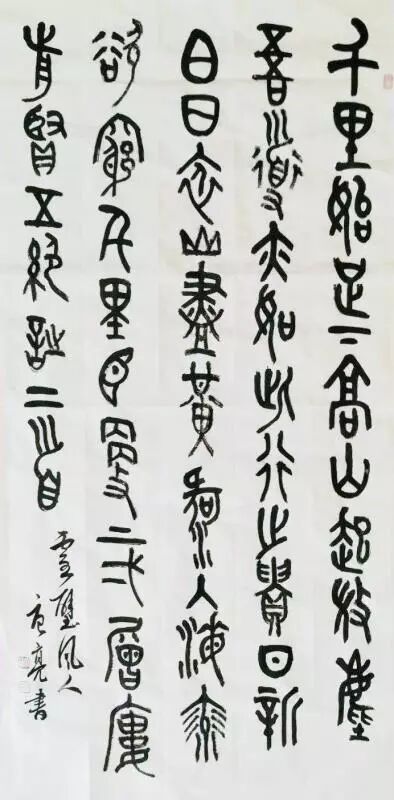 千里始足下高山起微塵
吾道亦如此行之貴日新
白日依山盡黃河入海流
欲窮千里目更上弌層樓
前賢五絕詩二首
靈璧人
亮書